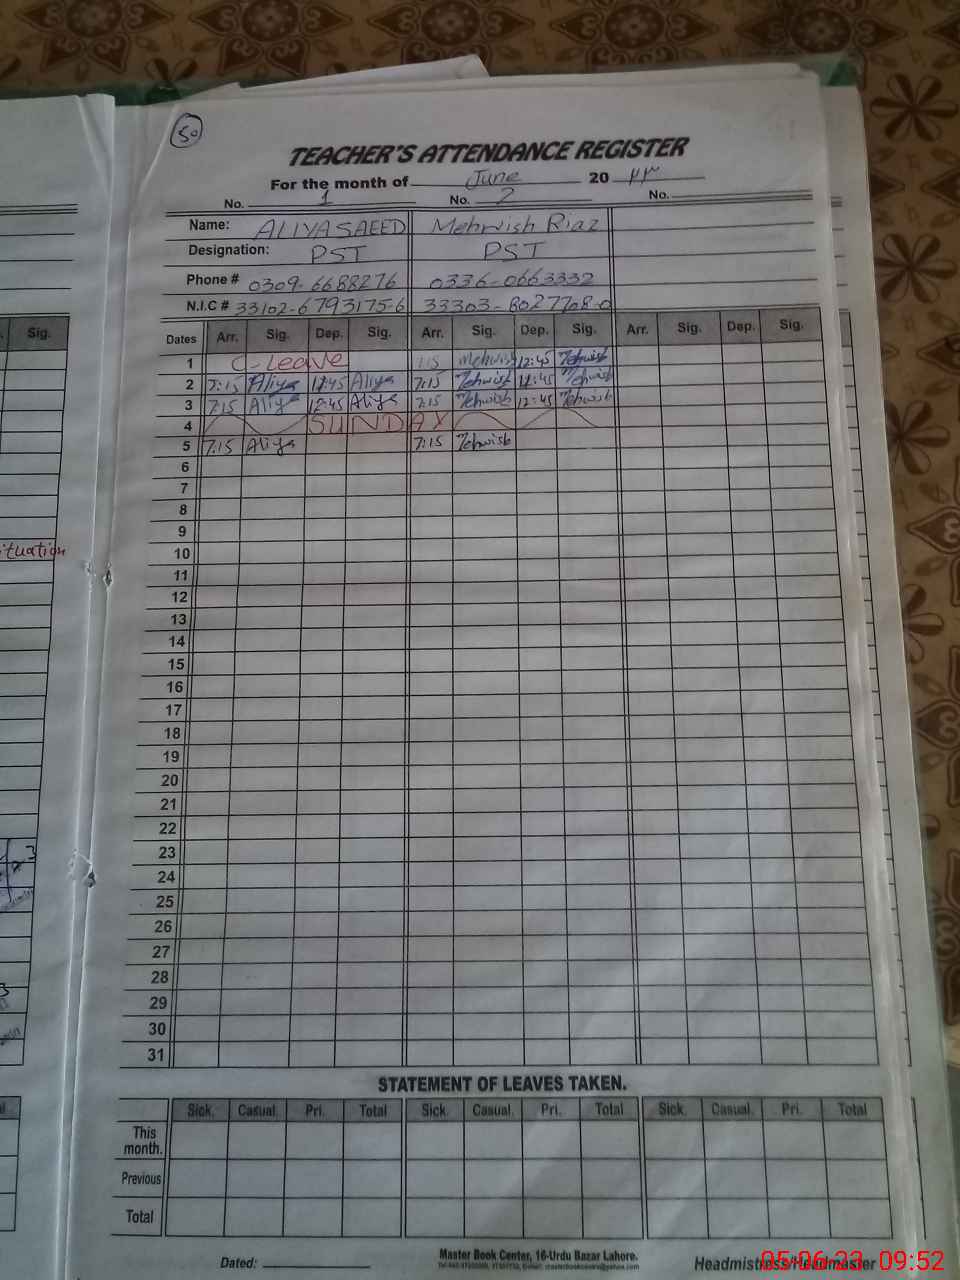 50
TEACHER'S ATTENDANCE REGISTER
For the month of June 20 ۲۳
No. 1 No. 2 No.
Name: ALIYA SAEED Mehwish Riaz
Designation: PST PST
Phone # 0309-6688276 0336-0663332
N.I.C # 33102-6793175-6 33303-8027708-0
Sig.
Dates Arr. Sig. Dep. Sig. Arr. Sig. Dep. Sig. Arr. Sig. Dep. Sig.
1 C-Leave 7:15 Mehwish 12:45 Mehwish
2 7:15 Aliya 12:45 Aliya 7:15 Mehwish 12:45 Mehwish
3 7:15 Aliya 12:45 Aliya 7:15 Mehwish 12:45 Mehwish
4 SUNDAY
5 7:15 Aliya 7:15 Mehwish
6
7
8
9
10
11
12
13
14
15
16
17
18
19
20
21
22
23
24
25
26
27
28
29
30
31
ituation
STATEMENT OF LEAVES TAKEN.
Sick. Casual. Pri. Total Sick. Casual. Pri. Total Sick. Casual. Pri. Total
This month.
Previous
Total
Dated:
Master Book Center, 16-Urdu Bazar Lahore.
Headmistress/Headmaster
05.06.23 09:52